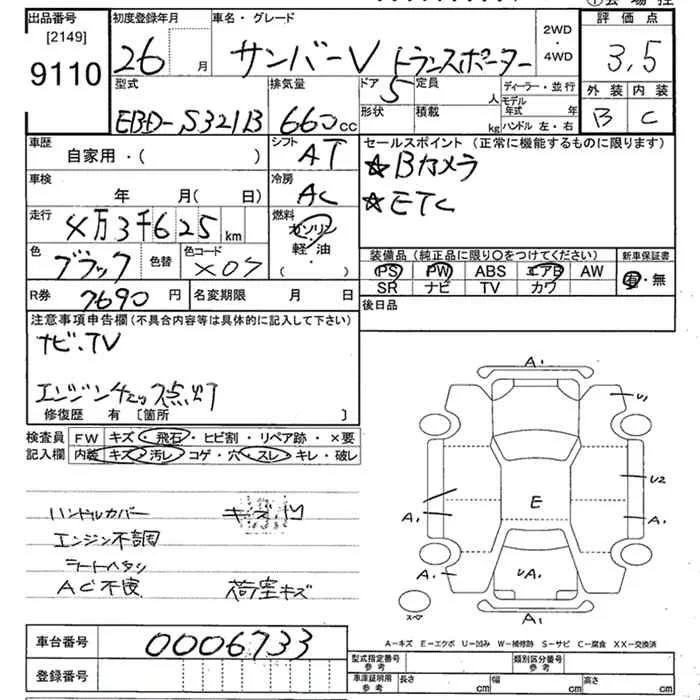 ①会場控
出品番号 初度登録年月 車名・グレード 評価点
[2149] 9110 26 月 サンバーV トランスポーター 2WD・4WD 3,5
型式 排気量 ドア 5 定員 人 ディーラー・並行 外装 内装
EBD-S321B 660cc 形状 積載 kg モデル年式 年 ハンドル 左・右 B C
車歴 自家用・( ) シフト AT セールスポイント (正常に機能するものに限ります)
☆Bカメラ
車検 年 月(日) 冷房 AC ☆ETC
走行 4万3千625 km 燃料 ガソリン・軽油・( )
色 ブラック 色替 色コード X07 装備品 (純正品に限り○をつけてください) 新車保証書
PS PW ABS エアB AW 有・無
R券 7690円 名変期限 月 日 SR ナビ TV カワ
注意事項申告欄(不具合内容等は具体的に記入して下さい) 後日品
ナビ・TV
エンジンチェック点灯
修復歴 有 〔箇所 〕
検査員 FW キズ・飛石・ヒビ割・リペア跡・×要
記入欄 内装 キズ・汚レ・コゲ・穴・スレ・キレ・破レ
ハンドルカバー キズ凹
エンジン不調
シートヘタリ
AC不良 荷室キズ
A1
U1
U2
A1
E
A1
A1
UA1
スペア
A1
車台番号 0006733
A-キズ E-エクボ U-凹み W-補修跡 S-サビ C-腐食 XX-交換済
登録番号 型式指定番号 参考 類別区分番号 参考
車庫証明用 参考 長さ cm 幅 cm 高さ cm